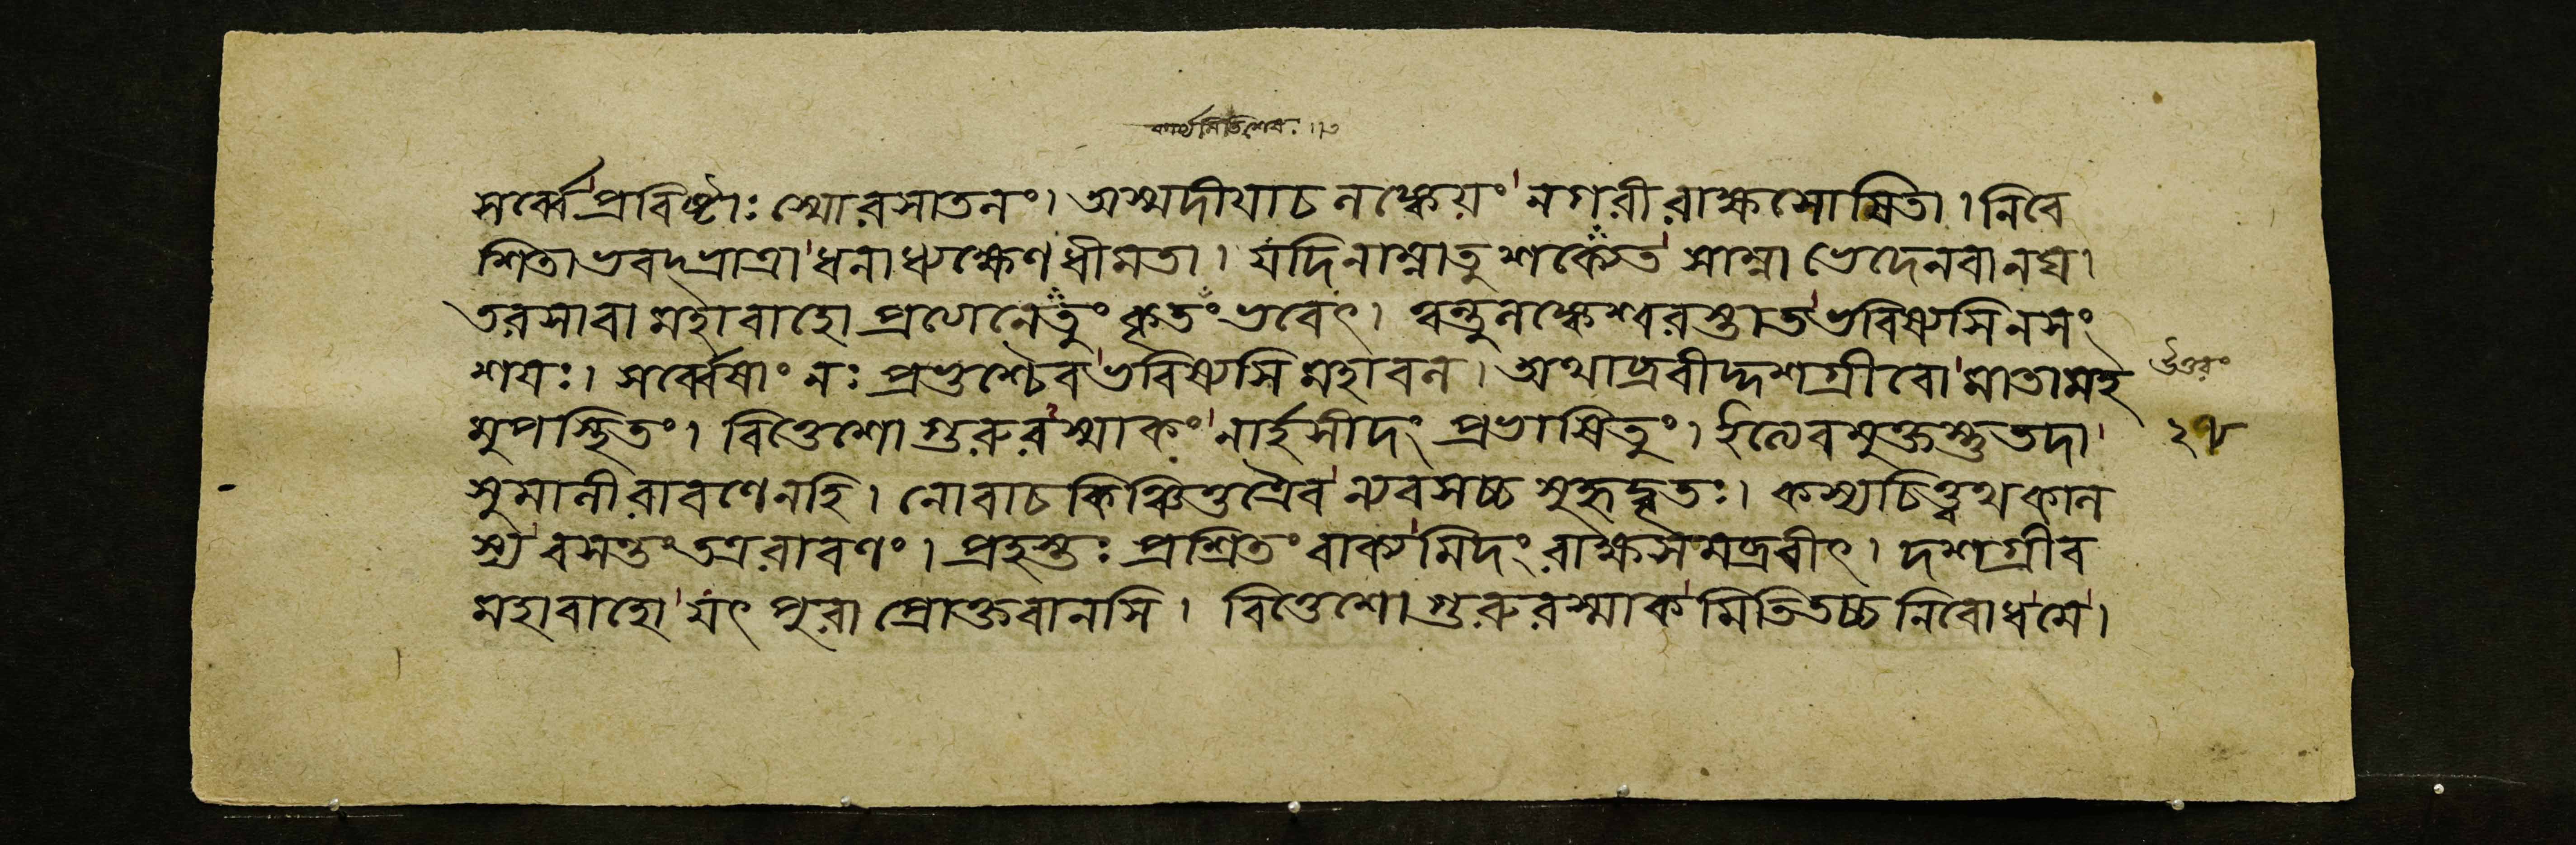 কার্যমিতিশেষঃ ॥ ৩
সর্ব্বে প্রবিষ্টাঃ স্মো রসাতলং। অস্মদীয়াচ লঙ্কেয়ং নগরী রাক্ষসোষিতা। নিবে
শিতা ভবদ্ভ্রাত্রা ধনাধ্যক্ষেণ ধীমতা। যদি নাম্নাতু শক্যেত সাম্না ভেদেনবানঘ।
তরসাবা মহাবাহো প্রত্যানেতুং কৃতং ভবেৎ। ত্বন্তু লঙ্কেশ্বরস্তাত ভবিষ্যসি নসং
শয়ঃ। সর্ব্বেষাং নঃ প্রভুশ্চৈব ভবিষ্যসি মহাবল। অথাব্রবীদ্দশগ্রীবো মাতামহ
মুপস্থিতং। বিত্তেশো গুরুরস্মাকং নার্হসীদং প্রভাষিতুং। ইত্যেবমুক্তস্তু তদা
সুমালী রাবণেনহি। নোবাচ কিঞ্চিত্তত্রৈব ন্যবসচ্চ সুহৃদ্বৃতঃ। কস্যচিত্ত্বথ কাল
স্য বসন্তং তত্র রাবণং। প্রহস্তঃ প্রশ্রিতং বাক্যমিদং রাক্ষসমব্রবীৎ। দশগ্রীব
মহাবাহো যৎ পুরা প্রোক্তবানসি। বিত্তেশো গুরুরস্মাকমিতি তচ্চ নিবোধ মে।
উত্তরং
২৮